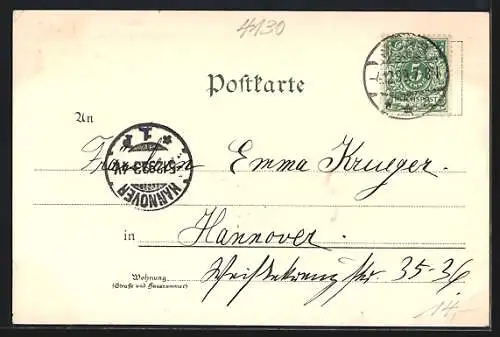 4130
Postkarte
5
REICHSPOST
An
Fräulein Emma Krueger.
HANNOVER
5.12.99.3-4N.
in Hannover.
Wohnung
(Straße und Hausnummer)
Weissekreuz str. 35-36
14,-